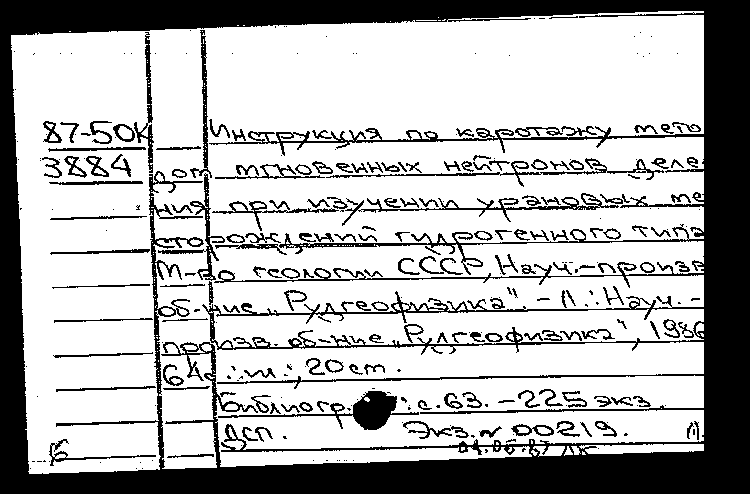 87-50К Инструкция по каротажу мето
3884 дом мгновенных нейтронов деле-
ния при изучении урановых ме
сторождений гидрогенного типа
М-во геологии СССР, Науч.-произв
об-ние „Рудгеофизика". - Л.: Науч.-
произв. об-ние „Рудгеофизика", 1986
64с.: ил.; 20 см.
Библиогр.: с. 63. - 225 экз.
ДСП. Экз. № 00219.
Б 04.06.87